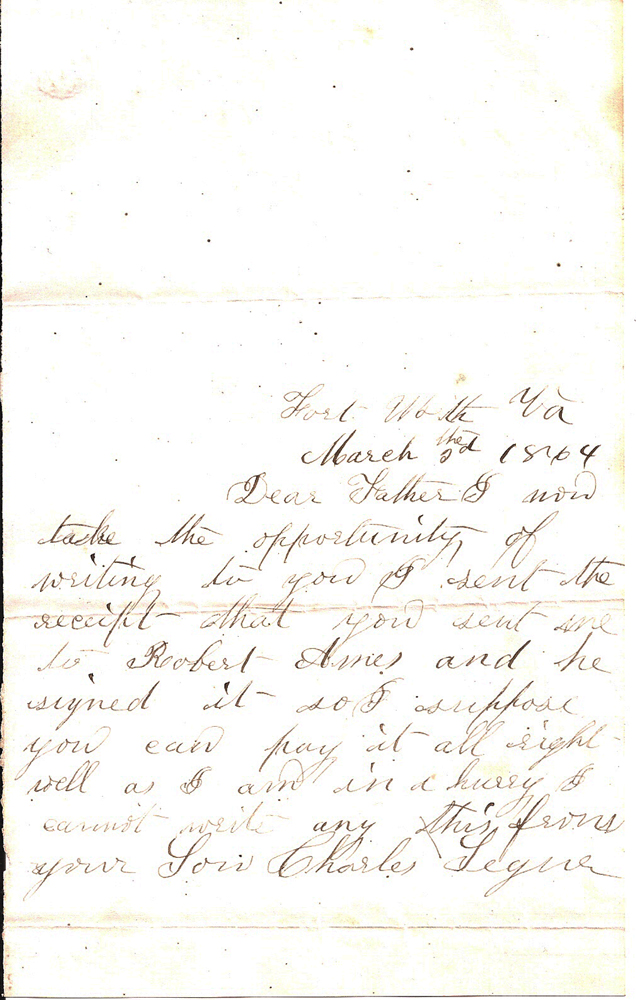 Fort Worth Va
March the 3d 1864
Dear Father I now
take the opportunity of
writing to you I sent the
receipt that you sent me
to Robert Ames and he
signed it so I suppose
you can pay it all right
well as I am in a hurry I
cannot write any this from
your Son Charles Segne